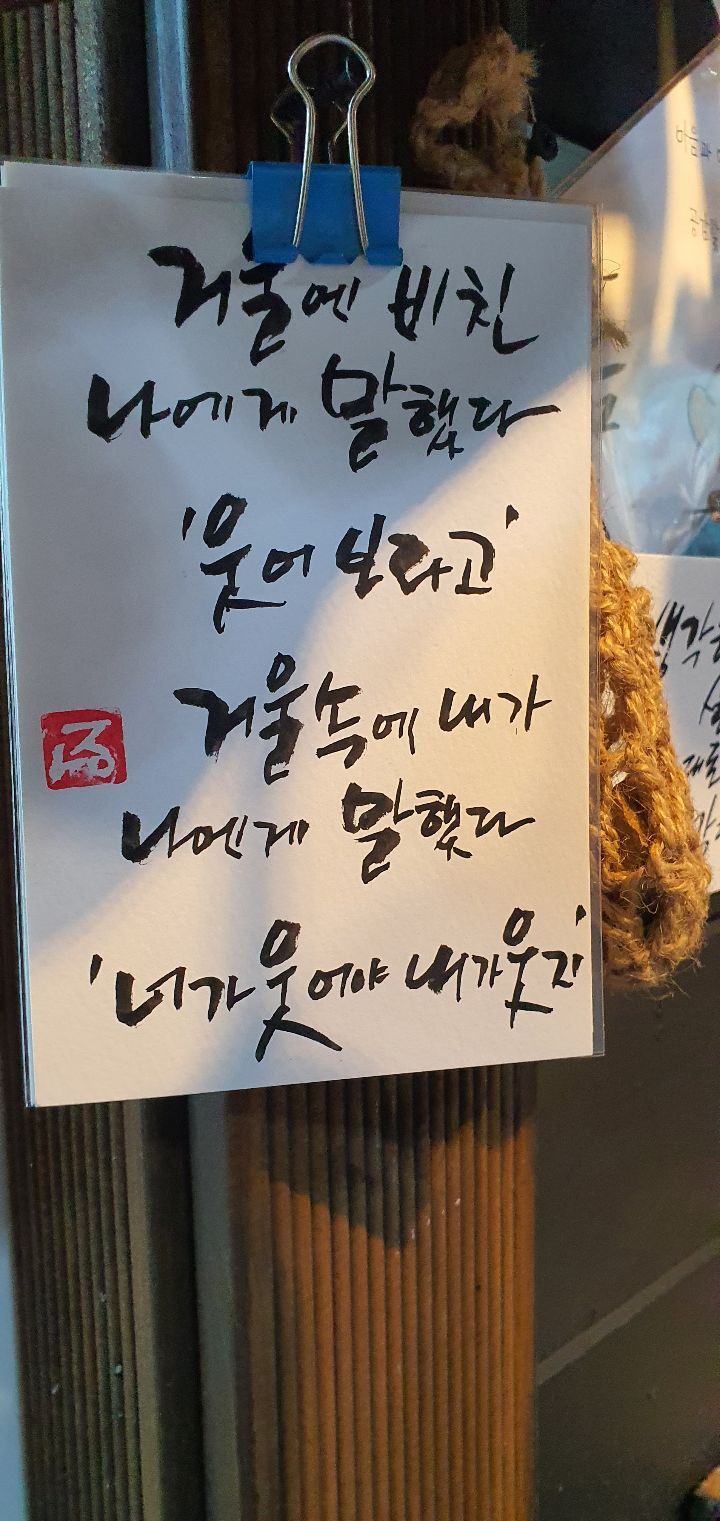 거울에 비친
나에게 말했다
'웃어 보라고'
거울속에 내가
나에게 말했다
'너가 웃어야 내가 웃지'